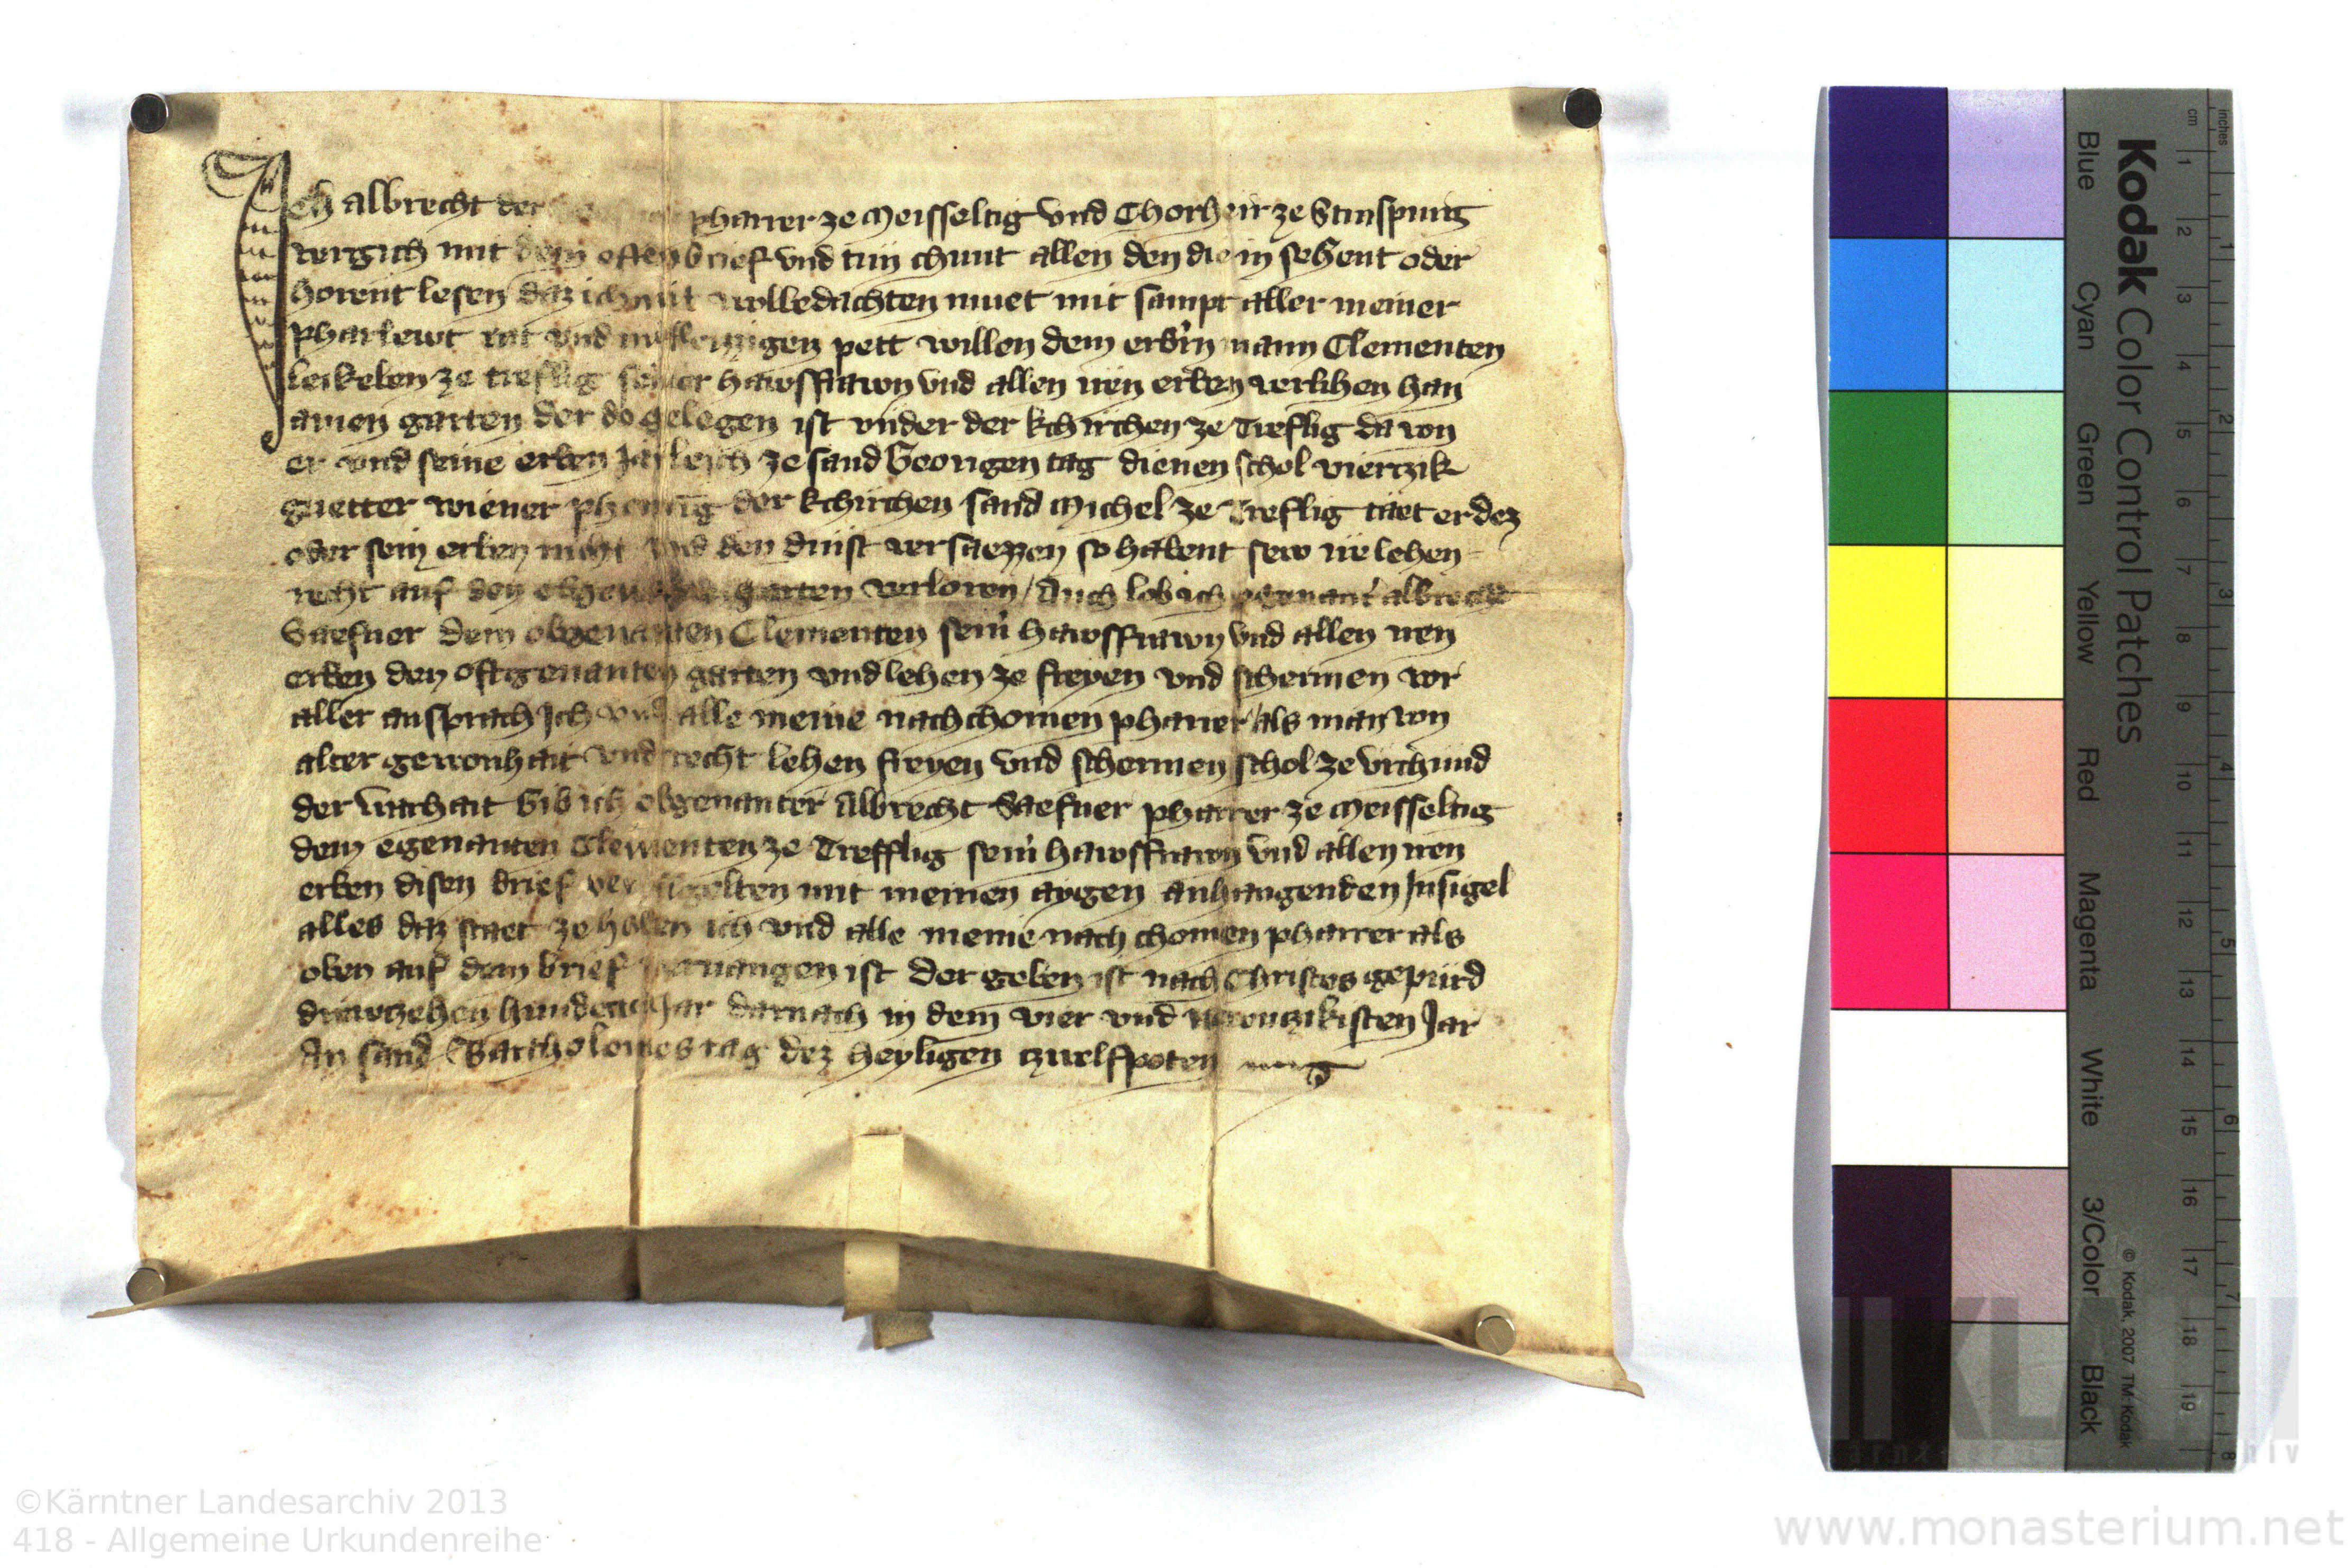 Ich albrecht der pharrer ze Meisseltig vnd Chorherr ze
vergich mit dem offen brief vnd tun chunt allen den die in sehent oder
horent lesen daz ich mit volledachten muet mit sampt aller meiner
pharlewt rat vnd pett willen dem erbern mann Clementen
ze treflig seiner hawsfrawn vnd allen iren erben verlihen han
ainen garten der do gelegen ist vnder der kchirchen ze Treflig da von
er vnd seine erben Jarleich ze sand Georigen tag dienen schol viertzik
guetter wiener phennig der kchirchen sand Michel ze Treflig täet er dez
oder sein erben nicht vnd den dinst versaezzen so habent sew ire lehen
recht auf den garten verloren / Auch lob ich albrecht
Saefner dem obgenanten Clementen sein hawsfrawn vnd allen iren
erben den oftgenanten garten vnd lehen ze freyen vnd schermen vor
aller ansprach Ich vnd alle meine nachchomen pharrer als man von
alter gewonhait vnd recht lehen freyen vnd schermen schol ze vrchund
der warhait Gib ich obgenanter Albrecht Saefner pharrer ze Meisseltig
dem egenanten Clementen ze Trefflig sein hawsfrawn vnd allen iren
erben disen brief versigelten mit meinen aygen anhangenden Insigel
alles daz staet ze haben ich vnd alle meine nach chomen pharrer als
oben auf dem brief ist Der geben ist nach Christes gepurd
drewtzehen hundert Jar darnach in dem vier vnd Jar
An sand Bartholomes tag dez heyligen tzwelfpoten
Kodak Color Control Patches
Blue Cyan Green Yellow Red Magenta White 3/Color Black
© Kodak, 2007 TM: Kodak
cm 1 2 3 4 5 6 7 8 9 10 11 12 13 14 15 16 17 18 19
inches 1 2 3 4 5 6 7 8
©Kärntner Landesarchiv 2013
418 - Allgemeine Urkundenreihe
www.monasterium.net